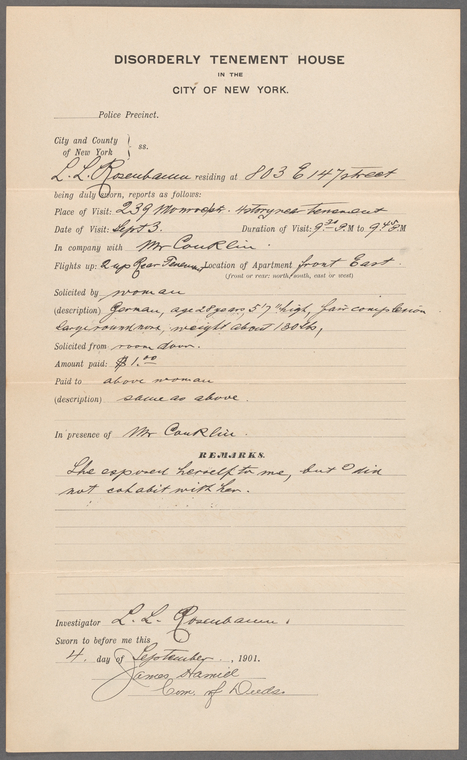 DISORDERLY TENEMENT HOUSE
IN THE
CITY OF NEW YORK.
Police Precinct.
City and County
of New York } ss.
L. L. Rosenbaum residing at 803 E 147 street
being duly sworn, reports as follows:
Place of Visit: 239 Monroe st. 4 story rear tenement
Date of Visit: Sept 3. Duration of Visit: 9 30 P.M to 9 45 P.M
In company with Mr Conklin.
Flights up: 2 up Rear Tenem Location of Apartment front East.
(front or rear: north, south, east or west)
Solicited by woman
(description) German, age 28 years, 5'7" high, fair complexion
large round nose, weight about 130 lbs,
Solicited from room door.
Amount paid: $1.00
Paid to above woman
(description) same as above.
In presence of Mr Conklin.
REMARKS.
She exposed herself to me, but I did
not cohabit with her.
Investigator L. L. Rosenbaum.
Sworn to before me this
4. day of September, 1901.
James Hamill
Com. of Deeds